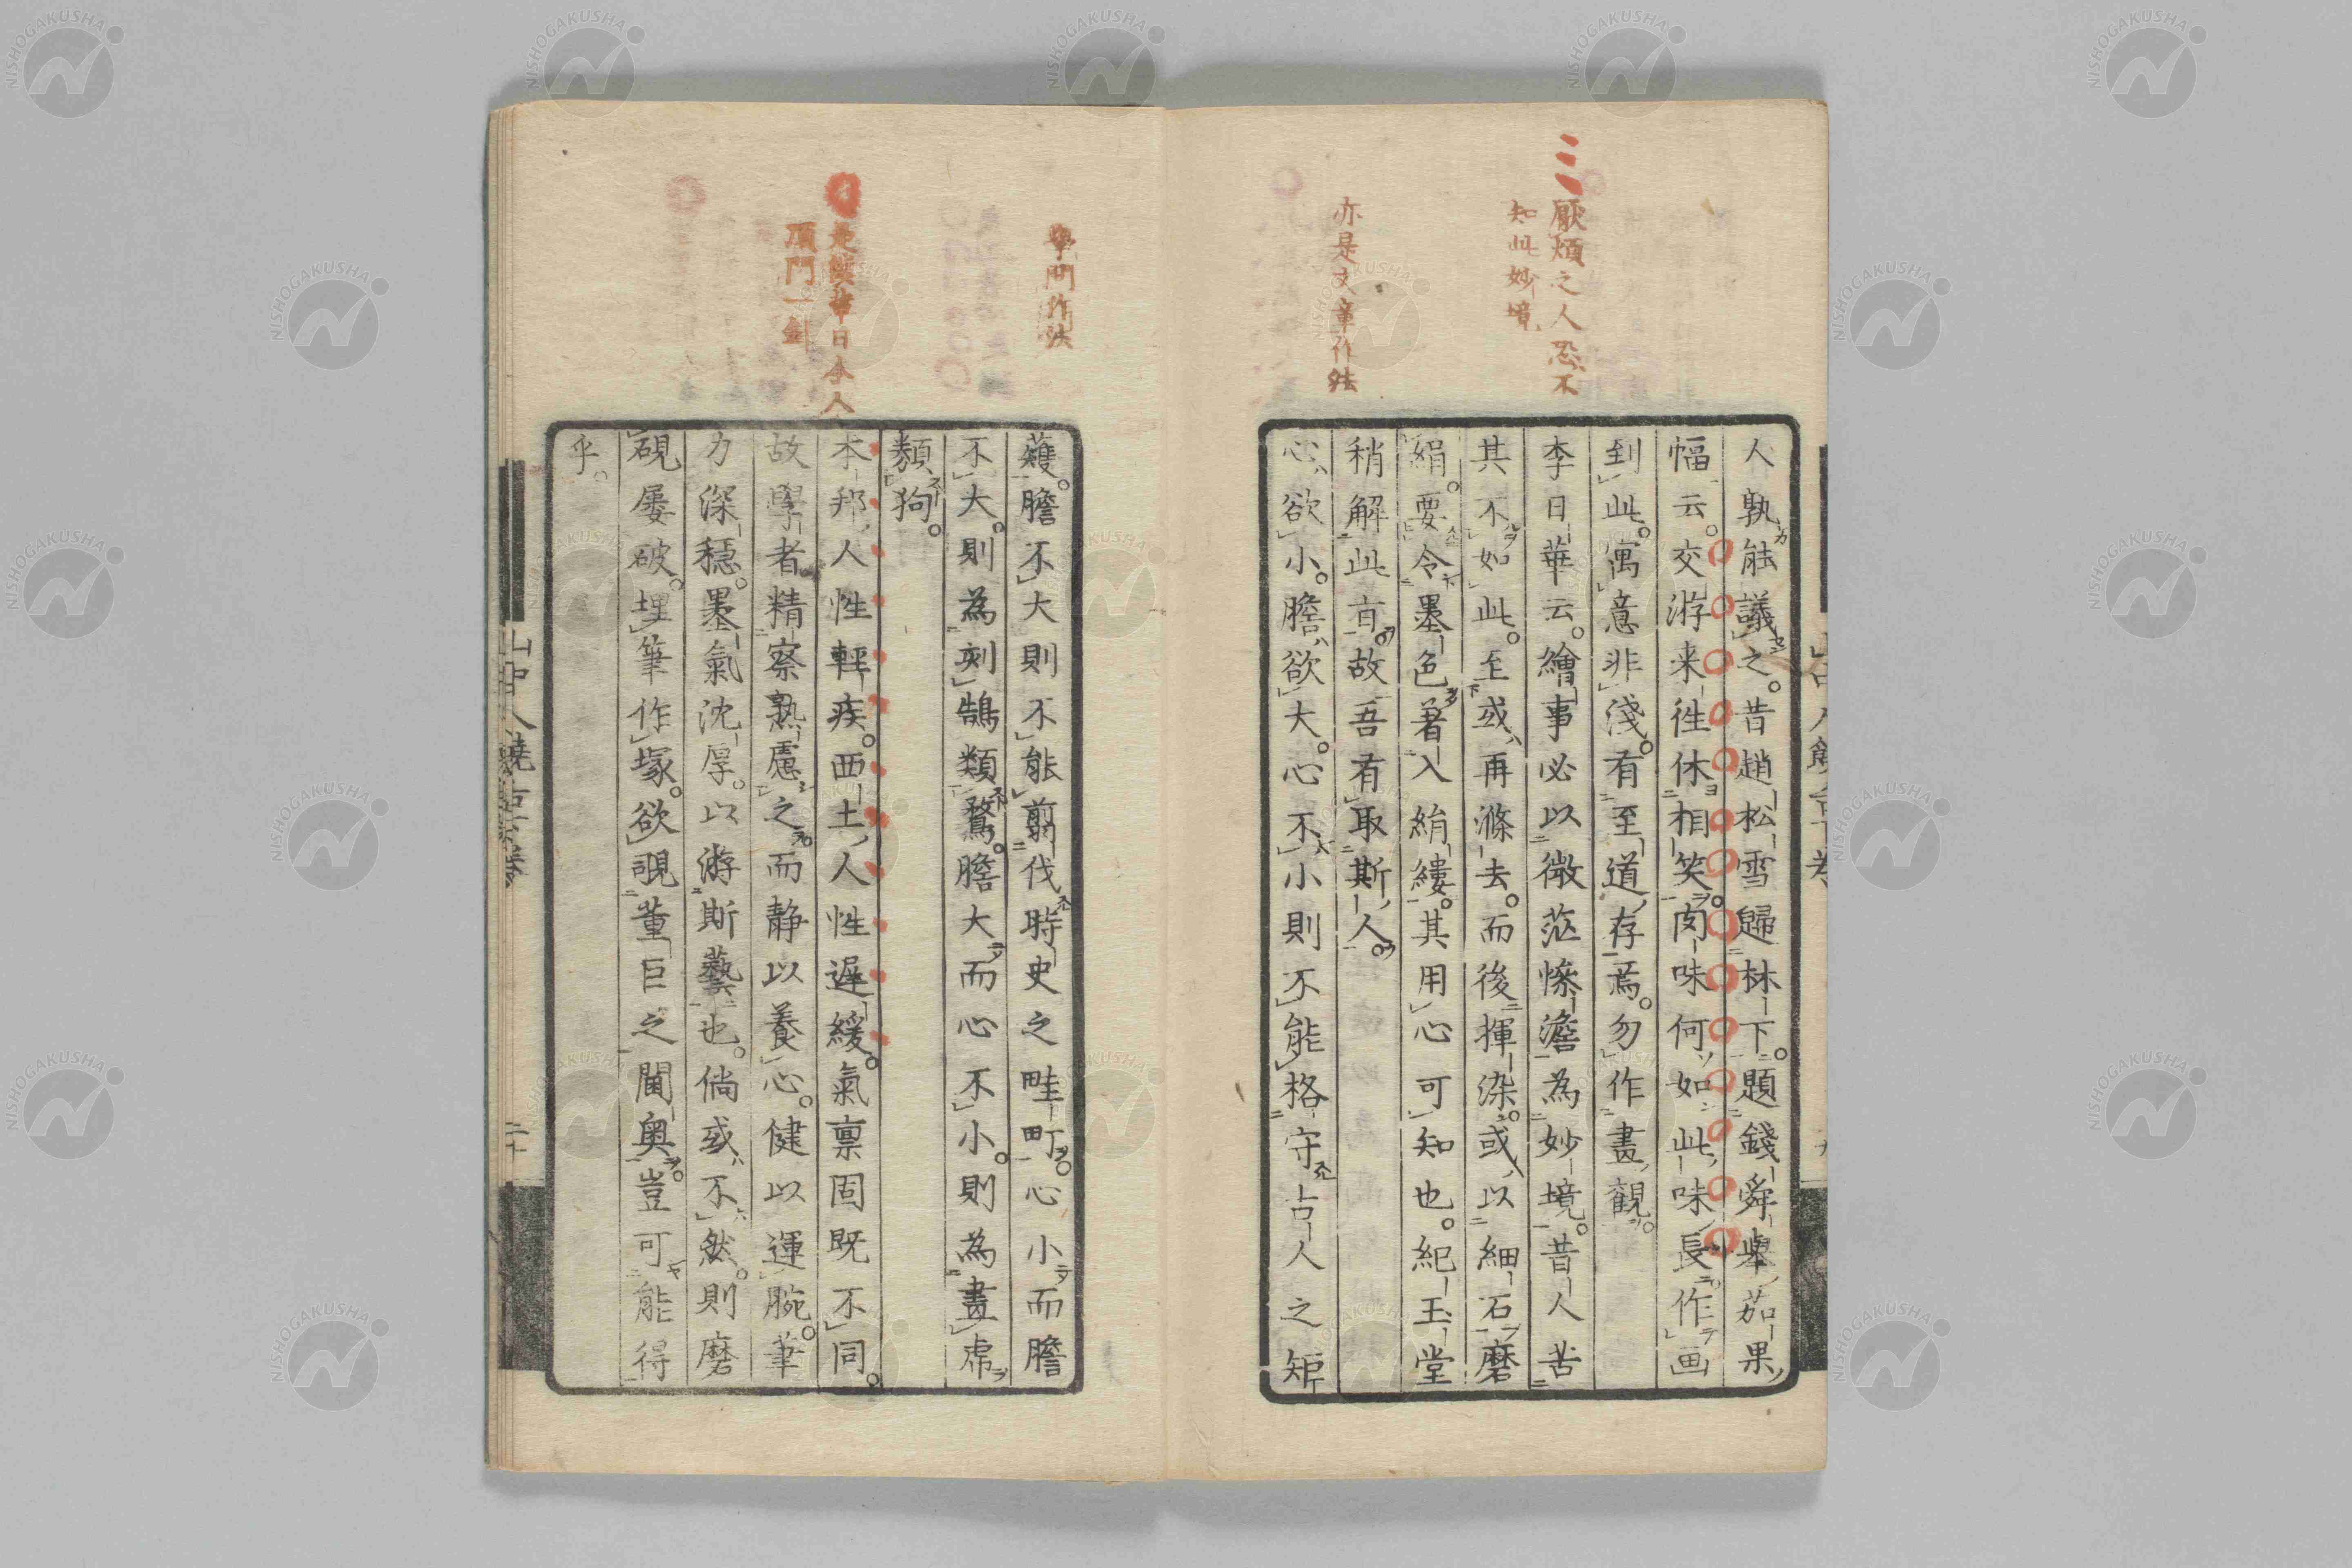 厭煩之人恐不
知此妙境
亦是文章作法
人孰能議之。昔趙松雪歸林下。題錢舜擧茄果
幅云。交游来往休相笑。肉味何如此味長。作画
到此。寓意非淺。有至道存焉。勿作畫觀。
李日華云。繪事必以微茫惨澹為妙境。昔人苦
其不如此。至或再滌去。而後揮染。或以細石磨
絹。要令墨色著入絹縷。其用心可知也。紀玉堂
稍解此旨。故吾有取斯人。
心欲小。膽欲大。心不小則不能格守古人之矩
學問作法
日本人
頂門一
矱。膽不大則不能剪伐時史之畦町。心小而膽
不大。則為刻鵠類鶩。膽大而心不小。則為畫虎
類狗。
本邦人性輕疾。西土人性遲緩。氣禀固既不同。
故學者精察熟慮之而静以養心。健以運腕。筆
力深穏。墨氣沈厚。以游斯藝也。倘或不然。則磨
硯屡破。埋筆作塚。欲覗董巨之閫奥。豈可能得
乎。